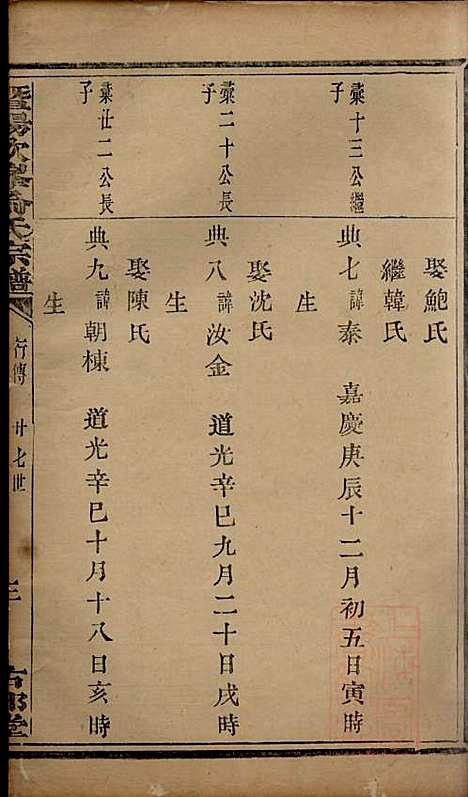 彙十三公繼
子
典七諱泰 嘉慶庚辰十二月初五日寅時
生
娶鮑氏
繼韓氏
彙二十公長
子
典八諱汝金 道光辛巳九月二十日戌時
生
娶沈氏
彙廿二公長
子
典九諱朝棟 道光辛巳十月十八日亥時
生
娶陳氏
暨陽次峯俞氏宗譜
行傳 廿七世